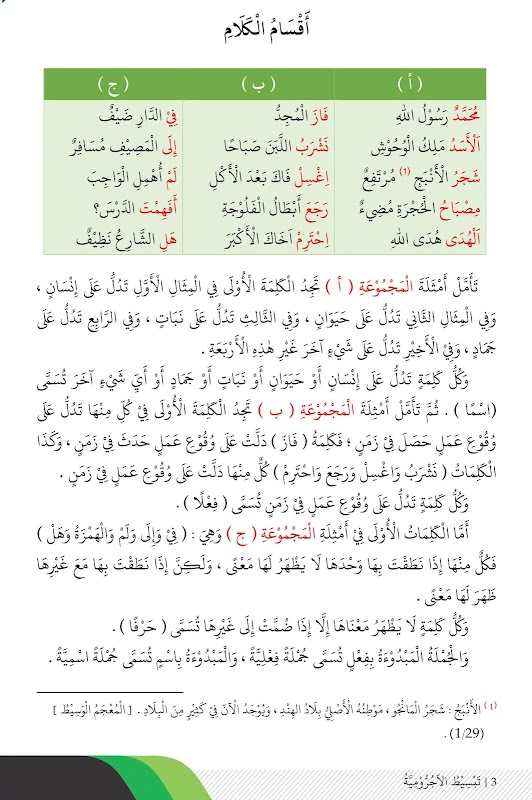 أَقْسَامُ الْكَلَامِ
( أ ) ( ب ) ( ج )
مُحَمَّدٌ رَسُوْلُ اللهِ فَازَ الْمُجِدُّ فِيْ الدَّارِ ضَيْفٌ
اَلْأَسَدُ مَلِكُ الْوُحُوْشِ نَشْرَبُ اللَّبَنَ صَبَاحًا إِلَى الْمَصِيْفِ مُسَافِرٌ
شَجَرُ الْأَنْبَجِ (1) مُرْتَفِعٌ اِغْسِلْ فَاكَ بَعْدَ الْأَكْلِ لَمْ أُهْمِلِ الْوَاجِبَ
مِصْبَاحُ الْحُجْرَةِ مُضِيْءٌ رَجَعَ أَبْطَالُ الْفَلُوْجَةِ أَفَهِمْتَ الدَّرْسَ؟
اَلْهُدَى هُدَى اللهِ اِحْتَرِمْ اَخَاكَ الْأَكْبَرَ هَلِ الشَّارِعُ نَظِيْفٌ
تَأَمَّلْ أَمْثِلَةَ الْمَجْمُوْعَةِ ( أ ) تَجِدُ الْكَلِمَةَ الْأُوْلَى فِي الْمِثَالِ الْأَوَّلِ تَدُلُّ عَلَى إِنْسَانٍ ،
وَفِي الْمِثَالِ الثَّانِي تَدُلُّ عَلَى حَيَوَانٍ ، وَفِي الثَّالِثِ تَدُلُّ عَلَى نَبَاتٍ ، وَفِي الرَّابِعِ تَدُلُّ عَلَى
جَمَادٍ ، وَفِيْ الْأَخِيْرِ تَدُلُّ عَلَى شَيْءٍ آخَرَ غَيْرِ هٰذِهِ الْأَرْبَعَةِ .
وَكُلُّ كَلِمَةٍ تَدُلُّ عَلَى إِنْسَانٍ أَوْ حَيَوَانٍ أَوْ نَبَاتٍ أَوْ جَمَادٍ أَوْ أَيِّ شَيْءٍ آخَرَ تُسَمَّى
(اسْمًا ) . ثُمَّ تَأَمَّلْ أَمْثِلَةَ الْمَجْمُوْعَةِ ( ب ) تَجِدُ الْكَلِمَةَ الْأُوْلَى فِيْ كُلٍّ مِنْهَا تَدُلُّ عَلَى
وُقُوْعِ عَمَلٍ حَصَلَ فِيْ زَمَنٍ ؛ فَكَلِمَةُ ( فَازَ ) دَلَّتْ عَلَى وُقُوْعِ عَمَلٍ حَدَثَ فِيْ زَمَنٍ ، وَكَذَا
الْكَلِمَاتُ ( نَشْرَبُ وَاغْسِلْ وَرَجَعَ وَاحْتَرِمْ ) كُلٌّ مِنْهَا دَلَّتْ عَلَى وُقُوْعِ عَمَلٍ فِيْ زَمَنٍ .
وَكُلُّ كَلِمَةٍ تَدُلُّ عَلَى وُقُوْعِ عَمَلٍ فِيْ زَمَنٍ تُسَمَّى ( فِعْلًا ) .
أَمَّا الْكَلِمَاتُ الْأُوْلَى فِيْ أَمْثِلَةِ الْمَجْمُوْعَةِ ( ج ) وَهِيَ : ( فِيْ وَإِلَى وَلَمْ وَالْهَمْزَةُ وَهَلْ )
فَكُلٌّ مِنْهَا إِذَا نَطَقْتَ بِهَا وَحْدَهَا لَا يَظْهَرُ لَهَا مَعْنًى ، وَلَكِنَّ إِذَا نَطَقْتَ بِهَا مَعَ غَيْرِهَا
ظَهَرَ لَهَا مَعْنًى .
وَكُلُّ كَلِمَةٍ لَا يَظْهَرُ مَعْنَاهَا إِلَّا إِذَا ضُمَّتْ إِلَى غَيْرِهَا تُسَمَّى ( حَرْفًا ) .
وَالْجُمْلَةُ الْمَبْدُوْءَةُ بِفِعْلٍ تُسَمَّى جُمْلَةً فِعْلِيَّةً ، وَالْمَبْدُوْءَةُ بِاسْمٍ تُسَمَّى جُمْلَةً اسْمِيَّةً .
(1) الأَنْبَجُ : شَجَرُ الْمَانْجُو ، مَوْطِنُهُ الْأَصْلِيُّ بِلَادُ الهِنْدِ ، وَيُوْجَدُ الْآنَ فِيْ كَثِيْرٍ مِنَ الْبِلَادِ . [ الْمُعْجَمُ الْوَسِيْطُ ]
(1/29) .
3 | تَبْسِيْطُ الآجُرُّوْمِيَّةُ